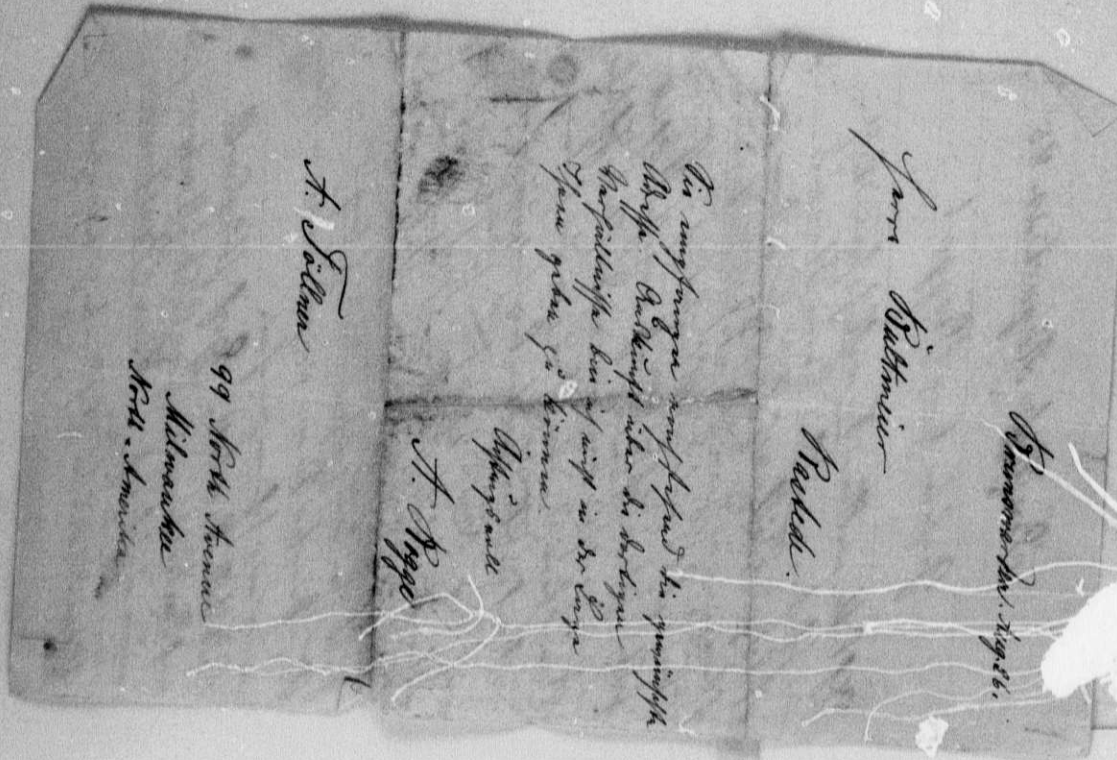 Aug. 26.
Herrn Bültmeier
Sie empfangen nachstehend die gewünschte
Adresse. Auskunft über die dortigen
Verhältnisse bin ich nicht in der Lage
Ihnen geben zu können.
Achtungsvoll
A. Pogge
A. Töllner
99 North Avenue
Milwaukee
North-Amerika